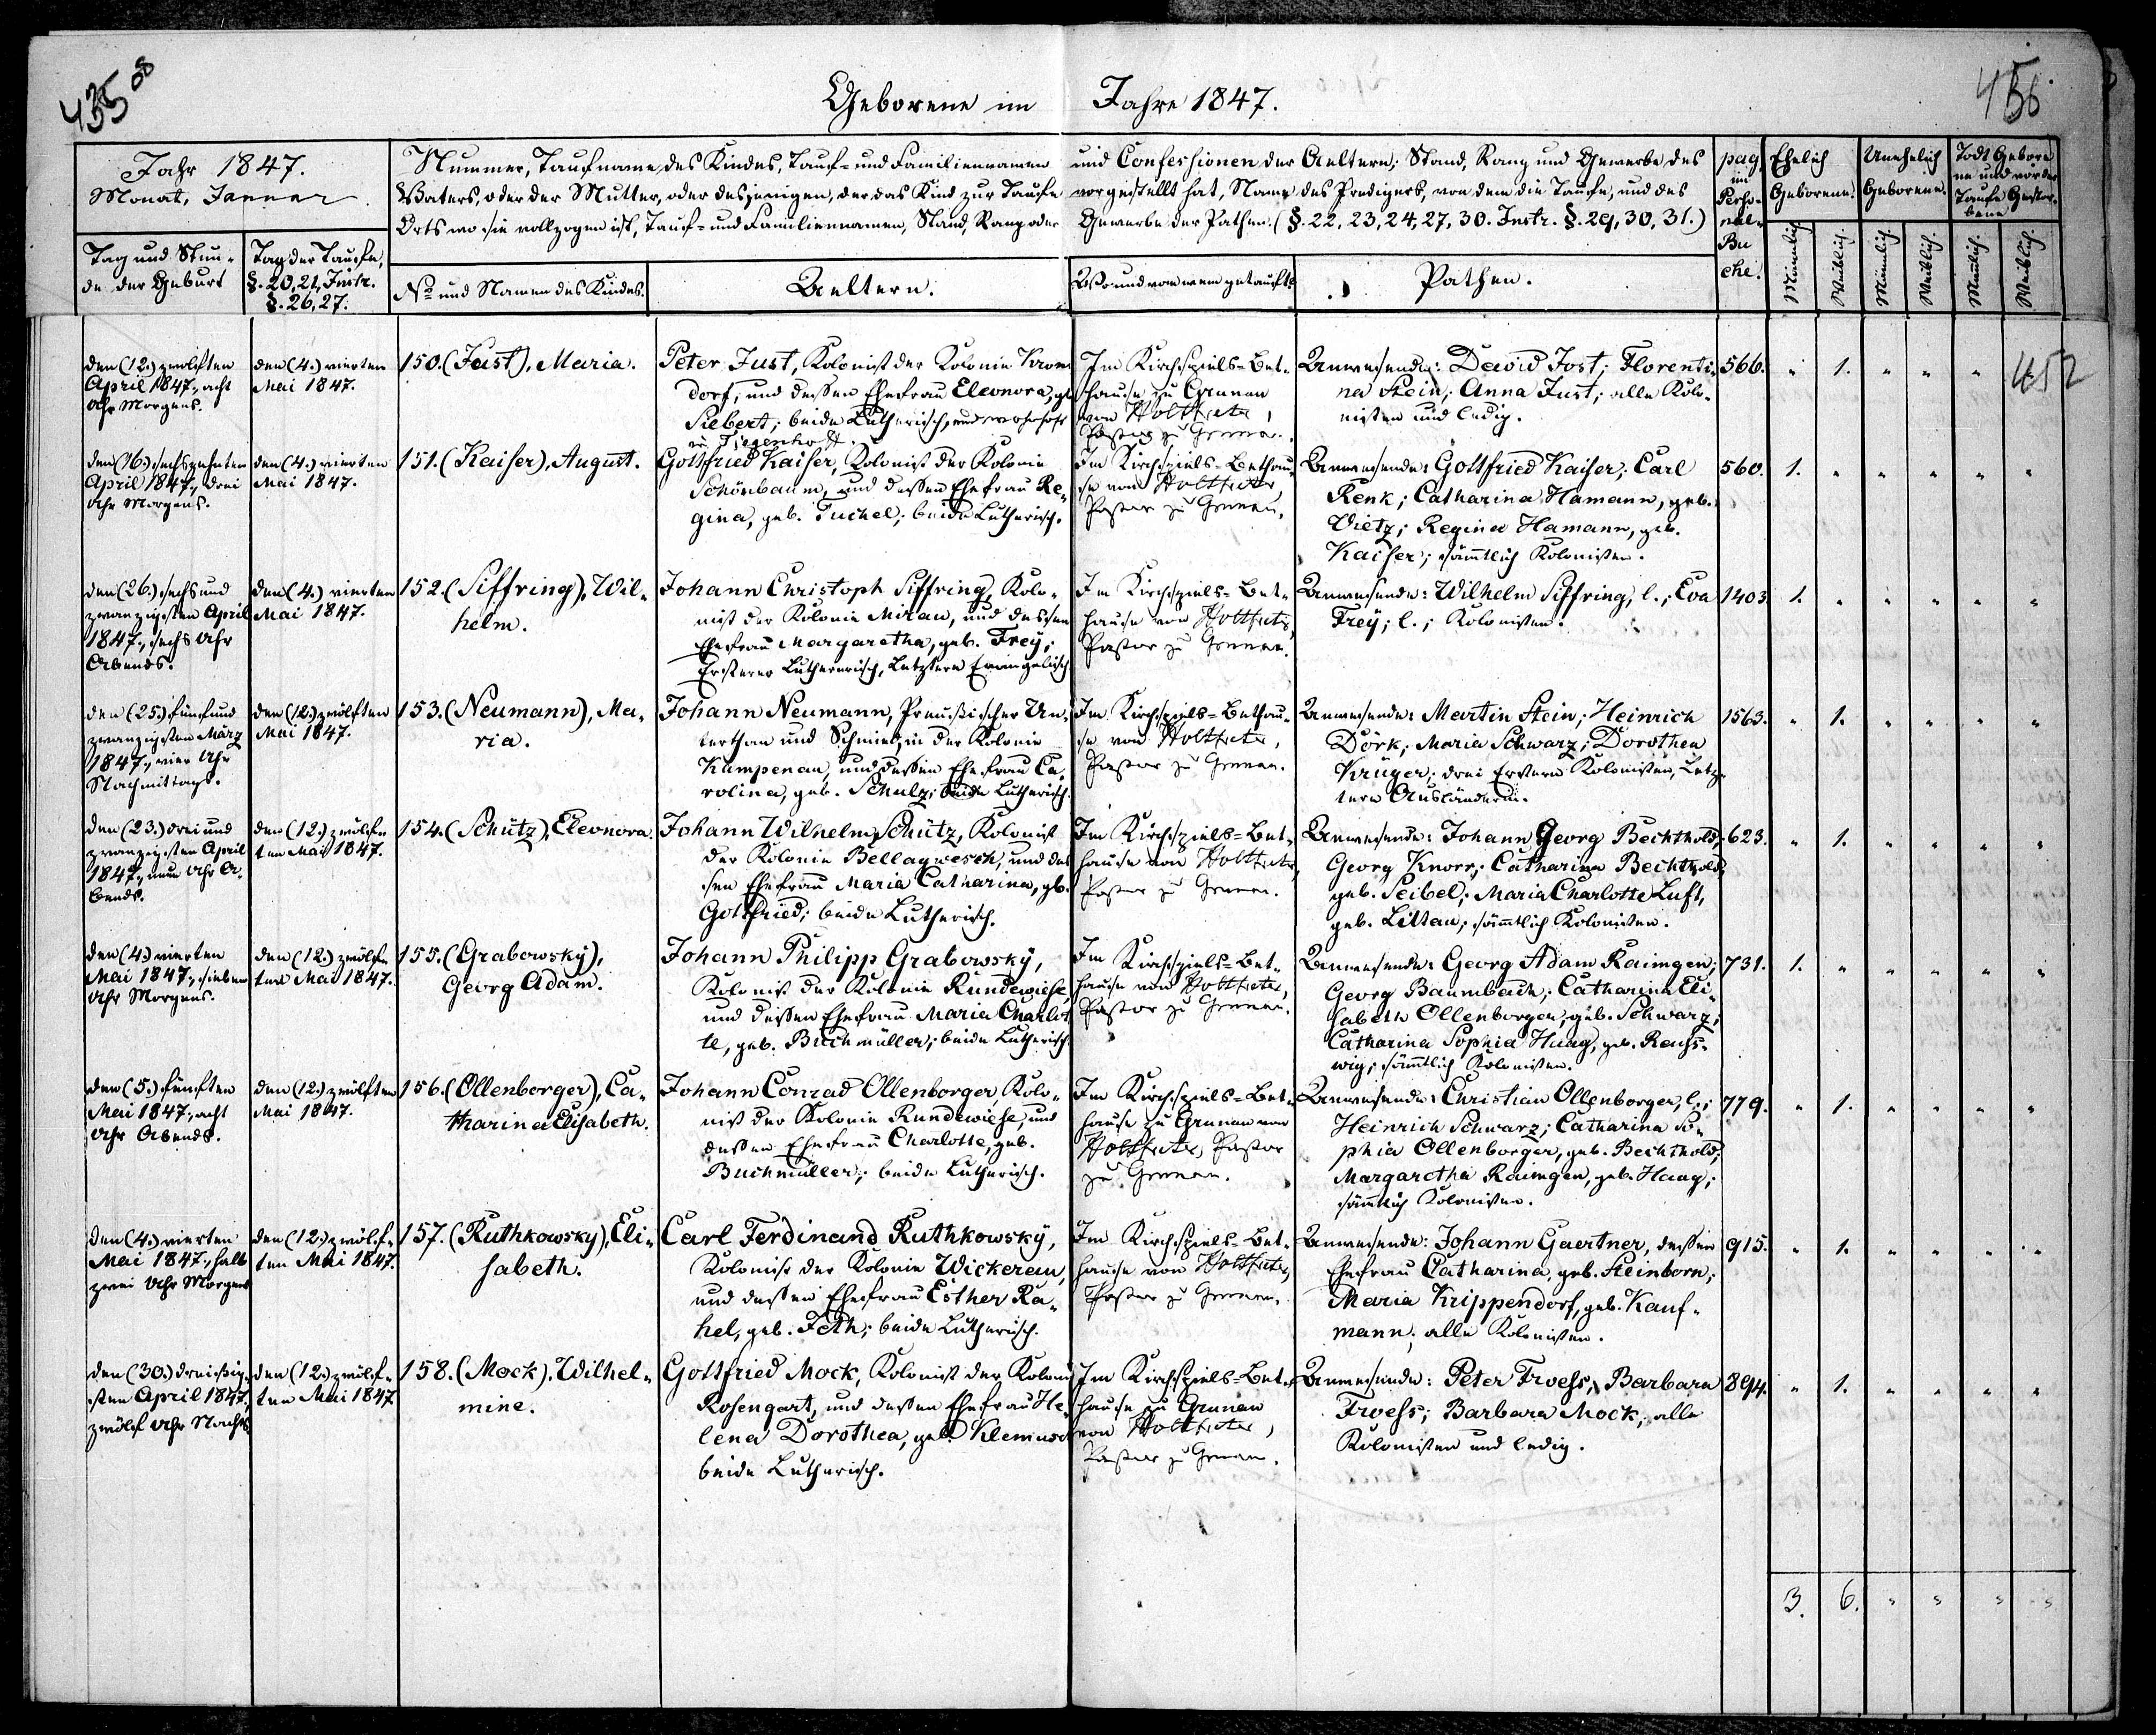 435
08
456
Geborene im Jahre 1847.
Jahr 1847.
Monat, Januar
Tag und Stun-
de der Geburt
Tag der Taufe,
§. 20, 21, Instr.
§. 26, 27.
Nummer, Taufname des Kindes, Tauf- und Familiennamen und Confessionen der Aeltern; Stand, Rang und Gewerbe des
Vaters, oder der Mutter, oder desjenigen, der das Kind zur Taufe vorgestellt hat, Name des Predigers, von dem die Taufe, und des
Orts wo sie vollzogen ist, Tauf- und Familiennamen, Stand, Rang oder Gewerbe der Pathen. (§. 22, 23, 24, 27, 30. Instr. §. 29, 30, 31.)
No und Namen des Kindes.
Aeltern.
Wo und von wem getauft?
Pathen.
pag.
im
Perso-
nal-
Bu
che.
Ehelich
Geborene.
Unehelich
Geborene.
Todt Gebore
ne und vor der
Taufe Gestor-
bene
Männlich.
Weiblich.
Männlich.
Weiblich.
Männlich.
Weiblich.
den (12.) zwölften
April 1847, acht
Uhr Morgens.
den (4.) vierten
Mai 1847.
150. (Just), Maria.
Peter Just, Kolonist der Kolonie Krons
dorf, und dessen Ehefrau Eleonora, g
Siebert; beide Lutherisch, und wohnhaft
in Tiegenhof.
Im Kirchspiels-Bet-
hause zu Grunau
von Holtfreter,
Pastor zu Grunau.
Anwesende: David Jost; Florenti-
na Stein; Anna Just; alle Kolo-
nisten und ledig.
566. " 1. " " "
452
den (16.) sechszehnten
April 1847, drei
Uhr Morgens.
den (4.) vierten
Mai 1847.
151. (Kaiser), August.
Gottfried Kaiser, Kolonist der Kolonie
Schönbaum, und dessen Ehefrau Re-
gina, geb. Tuchel; beide Lutherisch.
Im Kirchspiels-Bethau-
se von Holtfreter,
Pastor zu Grunau.
Anwesende: Gottfried Kaiser; Carl
Renk; Catharina Hamann, geb.
Vietz; Regina Hamann, geb.
Kaiser; sämtlich Kolonisten.
560. 1. " " " " "
den (26.) sechs und
zwanzigsten April
1847, sechs Uhr
Abends.
den (4.) vierten
Mai 1847.
152. (Siffring), Wil-
helm.
Johann Christoph Siffring, Kolo-
nist der Kolonie Mirau, und dessen
Ehefrau Margaretha, geb. Frey;
Ersterer Lutherisch, Letztere Evangelisch.
Im Kirchspiels-Bet-
hause von Holtfreter,
Pastor zu Grunau.
Anwesende: Wilhelm Siffring, l.; Eva
Frey; l.; Kolonisten.
1403. 1. " " " " "
den (25.) fünf und
zwanzigsten März
1847, vier Uhr
Nachmittags.
den (12.) zwölften
Mai 1847.
153. (Neumann), Ma-
ria.
Johann Neumann, Preußischer Un-
terthan und Schmied in der Kolonie
Kampenau, und dessen Ehefrau Ca-
rolina, geb. Schulz; beide Lutherisch.
Im Kirchspiels-Bethau-
se von Holtfreter,
Pastor zu Grunau.
Anwesende: Martin Stein; Heinrich
Dörk; Maria Schwarz; Dorothea
Krüger; drei Erstere Kolonisten, Letz-
tere Ausländerin.
1563. " 1. " " " "
den (23.) drei und
zwanzigsten April
1847, neun Uhr A-
bends.
den (12.) zwölf-
ten Mai 1847.
154. (Schütz), Eleonora.
Johann Wilhelm Schütz, Kolonist
der Kolonie Bellagwesch, und des
sen Ehefrau Maria Catharina, gb.
Gottfried; beide Lutherisch.
Im Kirchspiels-Bet-
hause von Holtfreter,
Pastor zu Grunau.
Anwesende: Johann Georg Bechthold;
Georg Knorr; Catharina Bechthold,
geb. Seibel; Maria Charlotte Luft,
geb. Littau; sämtlich Kolonisten.
623. " 1. " " " "
den (4.) vierten
Mai 1847, sieben
Uhr Morgens.
den (12.) zwölf-
ten Mai 1847.
155. (Grabowsky),
Georg Adam.
Johann Philipp Grabowsky,
Kolonist der Kolonie Rundewiese,
und dessen Ehefrau Maria Charlot
te, geb. Buchmüller; beide Lutherisch.
Im Kirchspiels-Bet-
hause von Holtfreter,
Pastor zu Grunau.
Anwesende: Georg Adam Raimgen;
Georg Baumbach; Catharina Eli-
sabeth Ollenborger, geb. Schwarz;
Catharina Sophia Haag, geb. Reuss-
wig; sämtlich Kolonisten.
731. 1. " " " " "
den (5.) fünften
Mai 1847, acht
Uhr Abends.
den (12.) zwölften
Mai 1847.
156. (Ollenborger), Ca-
tharina Elisabeth.
Johann Conrad Ollenborger, Kolo-
nist der Kolonie Rundewiese, und
dessen Ehefrau Charlotte, geb.
Buchmüller; beide Lutherisch.
Im Kirchspiels-Bet-
hause zu Grunau von
Holtfreter, Pastor
zu Grunau.
Anwesende: Christian Ollenborger, l.;
Heinrich Schwarz; Catharina So-
phia Ollenborger, geb. Bechthold;
Margaretha Raimgen, geb. Haag;
sämtlich Kolonisten.
779. " 1. " " " "
den (4.) vierten
Mai 1847, halb
zwei Uhr Morgens
den (12.) zwölf-
ten Mai 1847.
157. (Ruthkowsky), Eli-
sabeth.
Carl Ferdinand Ruthkowsky,
Kolonist der Kolonie Wickerau,
und dessen Ehefrau Esther Ra-
hel, geb. Feth; beide Lutherisch.
Im Kirchspiels-Bet-
hause von Holtfreter,
Pastor zu Grunau.
Anwesende: Johann Gaertner, dessen
Ehefrau Catharina, geb. Steinborn;
Maria Krippendorf, geb. Kauf-
mann; alle Kolonisten.
915. " 1. " " " "
den (30.) dreissig-
sten April 1847,
zwölf Uhr Nachts
den (12.) zwölf-
ten Mai 1847
158. (Mock), Wilhel-
mine.
Gottfried Mock, Kolonist der Kolonie
Rosengart, und dessen Ehefrau He-
lena Dorothea, geb. Klemusch
beide Lutherisch.
Im Kirchspiels-Bet-
hause zu Grunau
von Holtfreter,
Pastor zu Grunau.
Anwesende: Peter Froess; Barbara
Froess; Barbara Mock; alle
Kolonisten und ledig.
894. " 1. " " " "
3. 6. " " " "